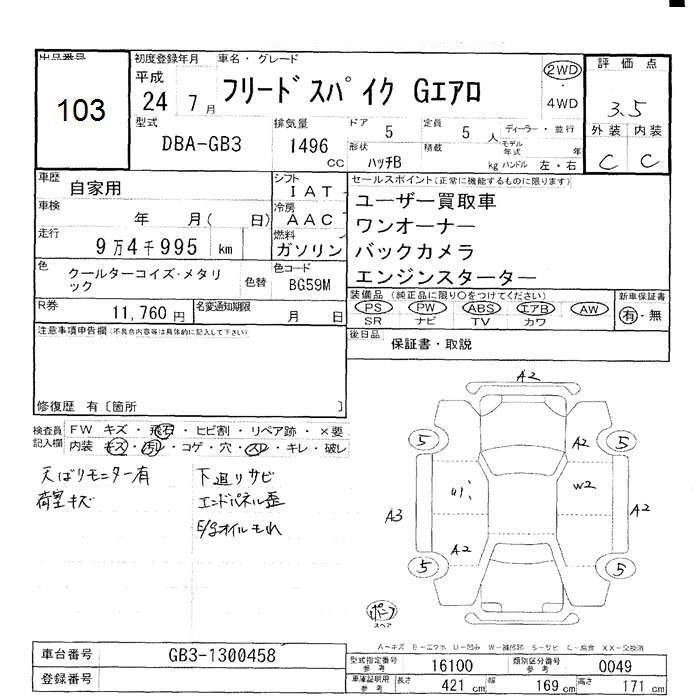 出品番号
103
初度登録年月
平成
24 7 月
車名・グレード
フリードスパイク Gエアロ
2WD
・
4WD
評価点
3.5
外装 内装
C C
型式
DBA-GB3
排気量
1496
cc
ドア 5
形状
ハッチB
定員 5 人
積載 kg
ディーラー・並行
モデル年式 年
ハンドル 左・右
車歴
自家用
シフト
IAT
車検
年 月( 日)
冷房
AAC
走行
9万4千995 km
燃料
ガソリン
色
クールターコイズ・メタリック
色替
色コード
BG59M
R券
11,760 円
名変通知期限
月 日
セールスポイント(正常に機能するものに限ります)
ユーザー買取車
ワンオーナー
バックカメラ
エンジンスターター
装備品 (純正品に限り○をつけてください)
PS PW ABS エアB AW
SR ナビ TV カワ
新車保証書
有・無
後日品
保証書・取説
注意事項申告欄(不具合内容等は具体的に記入して下さい)
修復歴 有〔箇所 〕
検査員記入欄
FW キズ・飛石・ヒビ割・リペア跡・×要
内装 キズ・汚れ・コゲ・穴・スレ・キレ・破レ
天ばりモニター有
荷室キズ
下廻りサビ
エンドパネル歪
E/gオイルもれ
A2
5 5
A2
W2
A3
A2
A2
5 5
スペア
A-キズ B-エクボ U-凹み W-補修跡 S-サビ C-腐食 XX-交換済
車台番号
GB3-1300458
登録番号
型式指定番号
参考
16100
類別区分番号
参考
0049
車庫証明用
参考
長さ 421 cm
幅 169 cm
高さ 171 cm